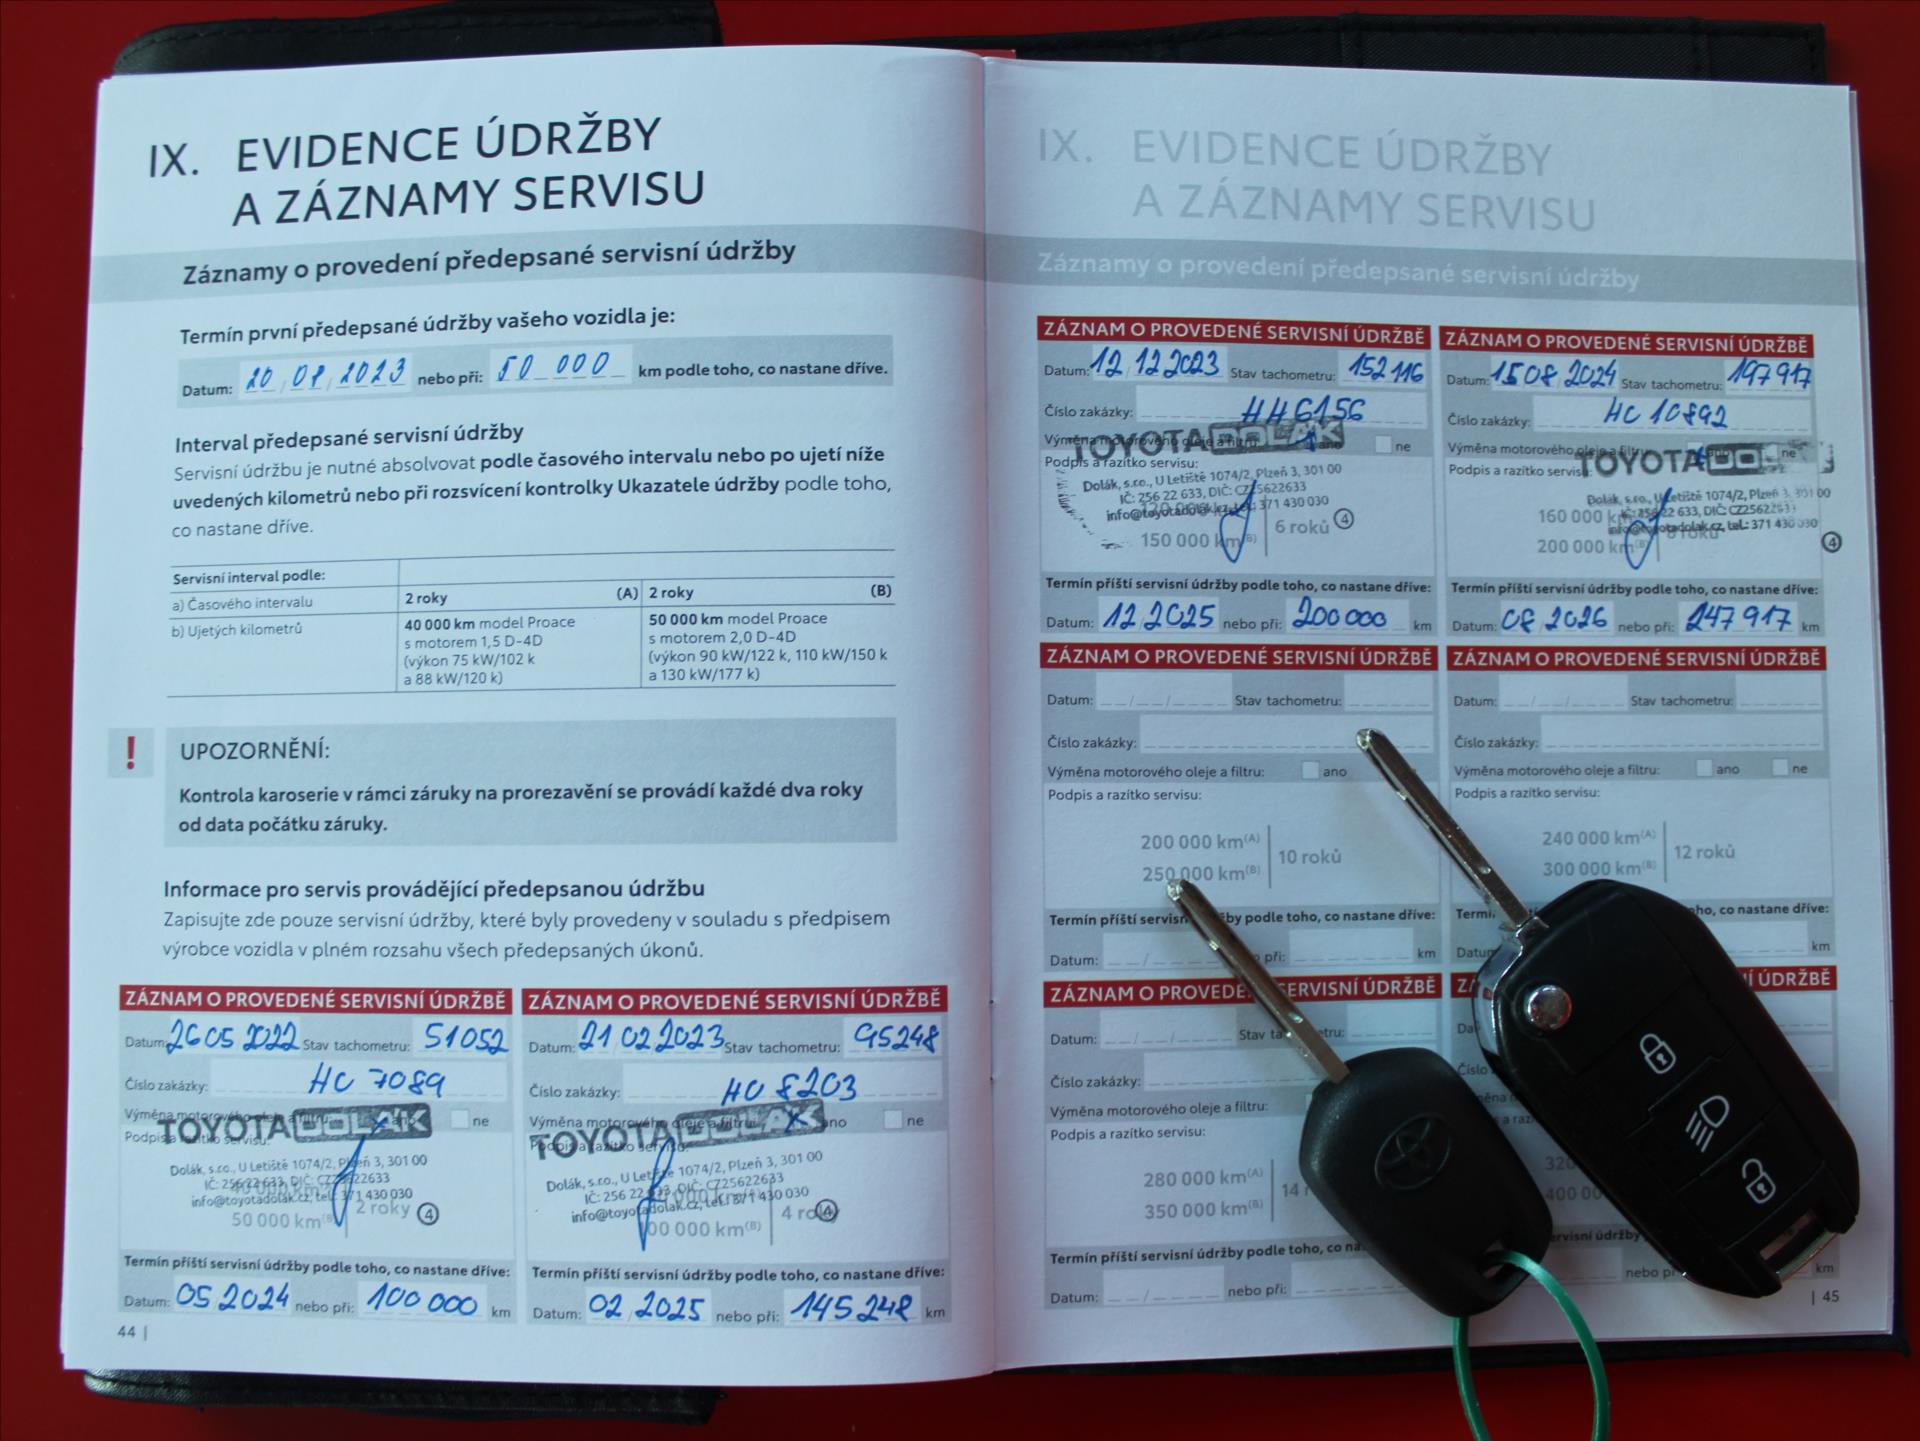 IX. EVIDENCE ÚDRŽBY
A ZÁZNAMY SERVISU
Záznamy o provedení předepsané servisní údržby
Termín první předepsané údržby vašeho vozidla je:
Datum: 20 08 2023 nebo při: 50 000 km podle toho, co nastane dříve.
Interval předepsané servisní údržby
Servisní údržbu je nutné absolvovat podle časového intervalu nebo po ujetí níže
uvedených kilometrů nebo při rozsvícení kontrolky Ukazatele údržby podle toho,
co nastane dříve.
Servisní interval podle:
a) Časového intervalu 2 roky (A) 2 roky (B)
b) Ujetých kilometrů 40 000 km model Proace 50 000 km model Proace
s motorem 1,5 D-4D s motorem 2,0 D-4D
(výkon 75 kW/102 k (výkon 90 kW/122 k, 110 kW/150 k
a 88 kW/120 k) a 130 kW/177 k)
!
UPOZORNĚNÍ:
Kontrola karoserie v rámci záruky na prorezavění se provádí každé dva roky
od data počátku záruky.
Informace pro servis provádějící předepsanou údržbu
Zapisujte zde pouze servisní údržby, které byly provedeny v souladu s předpisem
výrobce vozidla v plném rozsahu všech předepsaných úkonů.
ZÁZNAM O PROVEDENÉ SERVISNÍ ÚDRŽBĚ
Datum: 26 05 2022 Stav tachometru: 51052
Číslo zakázky: HC 7089
Výměna motorového oleje a filtru: ano ne
Podpis a razítko servisu:
TOYOTA DOLÁK
Dolák, s.r.o., U Letiště 1074/2, Plzeň 3, 301 00
IČ: 256 22 633, DIČ: CZ25622633
info@toyotadolak.cz, tel.: 371 430 030
40 000 km
50 000 km(B) 2 roky 4
Termín příští servisní údržby podle toho, co nastane dříve:
Datum: 05 2024 nebo při: 100 000 km
ZÁZNAM O PROVEDENÉ SERVISNÍ ÚDRŽBĚ
Datum: 21 02 2023 Stav tachometru: 95248
Číslo zakázky: HC 8203
Výměna motorového oleje a filtru: ano ne
Podpis a razítko servisu:
TOYOTA DOLÁK
Dolák, s.r.o., U Letiště 1074/2, Plzeň 3, 301 00
IČ: 256 22 633, DIČ: CZ25622633
info@toyotadolak.cz, tel.: 371 430 030
100 000 km(B) 4 roky 4
Termín příští servisní údržby podle toho, co nastane dříve:
Datum: 02 2025 nebo při: 145 248 km
44 |
IX. EVIDENCE ÚDRŽBY
A ZÁZNAMY SERVISU
Záznamy o provedení předepsané servisní údržby
ZÁZNAM O PROVEDENÉ SERVISNÍ ÚDRŽBĚ
Datum: 12 12 2023 Stav tachometru: 152 116
Číslo zakázky: HH6156
Výměna motorového oleje a filtru: ano ne
Podpis a razítko servisu:
TOYOTA DOLÁK
Dolák, s.r.o., U Letiště 1074/2, Plzeň 3, 301 00
IČ: 256 22 633, DIČ: CZ25622633
info@toyotadolak.cz, tel.: 371 430 030
120 000 km
150 000 km(B) 6 roků 4
Termín příští servisní údržby podle toho, co nastane dříve:
Datum: 12 2025 nebo při: 200 000 km
ZÁZNAM O PROVEDENÉ SERVISNÍ ÚDRŽBĚ
Datum: 15 08 2024 Stav tachometru: 197 917
Číslo zakázky: HC 10892
Výměna motorového oleje a filtru: ano ne
Podpis a razítko servisu:
TOYOTA DO
Dolák, s.r.o., U Letiště 1074/2, Plzeň 3, 301 00
IČ: 256 22 633, DIČ: CZ25622633
info@toyotadolak.cz, tel.: 371 430 030
160 000 km
200 000 km(B) 8 roků 4
Termín příští servisní údržby podle toho, co nastane dříve:
Datum: 08 2026 nebo při: 247 917 km
ZÁZNAM O PROVEDENÉ SERVISNÍ ÚDRŽBĚ
Datum: Stav tachometru:
Číslo zakázky:
Výměna motorového oleje a filtru: ano
Podpis a razítko servisu:
200 000 km(A)
250 000 km(B) 10 roků
Termín příští servisní údržby podle toho, co nastane dříve:
Datum: při: km
ZÁZNAM O PROVEDENÉ SERVISNÍ ÚDRŽBĚ
Datum: Stav tachometru:
Číslo zakázky:
Výměna motorového oleje a filtru: ano ne
Podpis a razítko servisu:
240 000 km(A)
300 000 km(B) 12 roků
Termí ho, co nastane dříve:
Datum km
ZÁZNAM O PROVEDENÉ SERVISNÍ ÚDRŽBĚ
Datum: Stav tachometru:
Číslo zakázky:
Výměna motorového oleje a filtru:
Podpis a razítko servisu:
280 000 km(A)
350 000 km(B) 14 r
Termín příští servisní údržby podle toho, co na
Datum: nebo při:
ZÁ Í ÚDRŽBĚ
Da
Číslo
320
400 00
servisní údržby
nebo př km
| 45